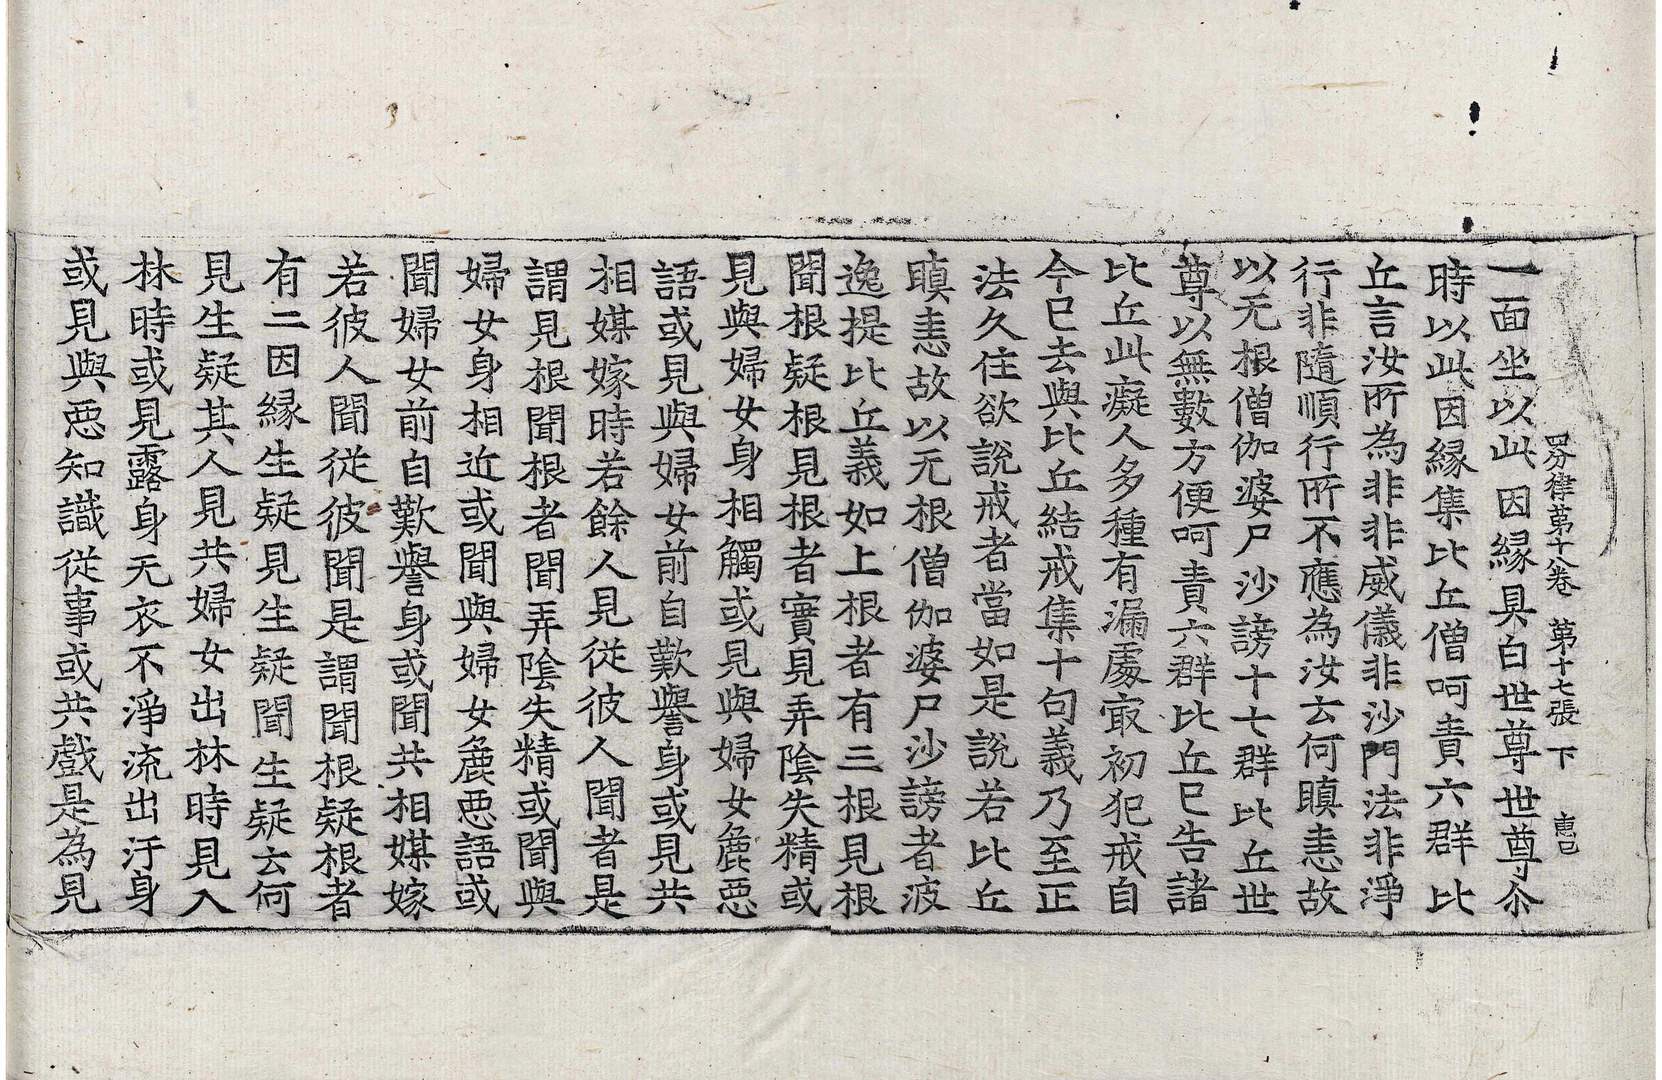 四分律苐十八卷 苐十七張 下 惠己
一面坐以此因緣具白世尊世尊尒
時以此因緣集比丘僧呵責六群比
丘言汝所為非非威儀非沙門法非淨
行非隨順行所不應為汝云何瞋恚故
以无根僧伽婆尸沙謗十七群比丘世
尊以無數方便呵責六群比丘已告諸
比丘此癡人多種有漏處㝡初犯戒自
今已去與比丘結戒集十句義乃至正
法久住欲說戒者當如是說若比丘
瞋恚故以无根僧伽婆尸沙謗者波
逸提比丘義如上根者有三根見根
聞根疑根見根者實見弄陰失精或
見與婦女身相觸或見與婦女麁惡
語或見與婦女前自歎譽身或見共
相媒嫁時若餘人見從彼人聞者是
謂見根聞根者聞弄陰失精或聞與
婦女身相近或聞與婦女麁惡語或
聞婦女前自歎譽身或聞共相媒嫁
若彼人聞從彼聞是謂聞根疑根者
有二因緣生疑見生疑聞生疑云何
見生疑其人見共婦女出林時見入
林時或見露身无衣不淨流出汙身
或見與惡知識從事或共戲是為見